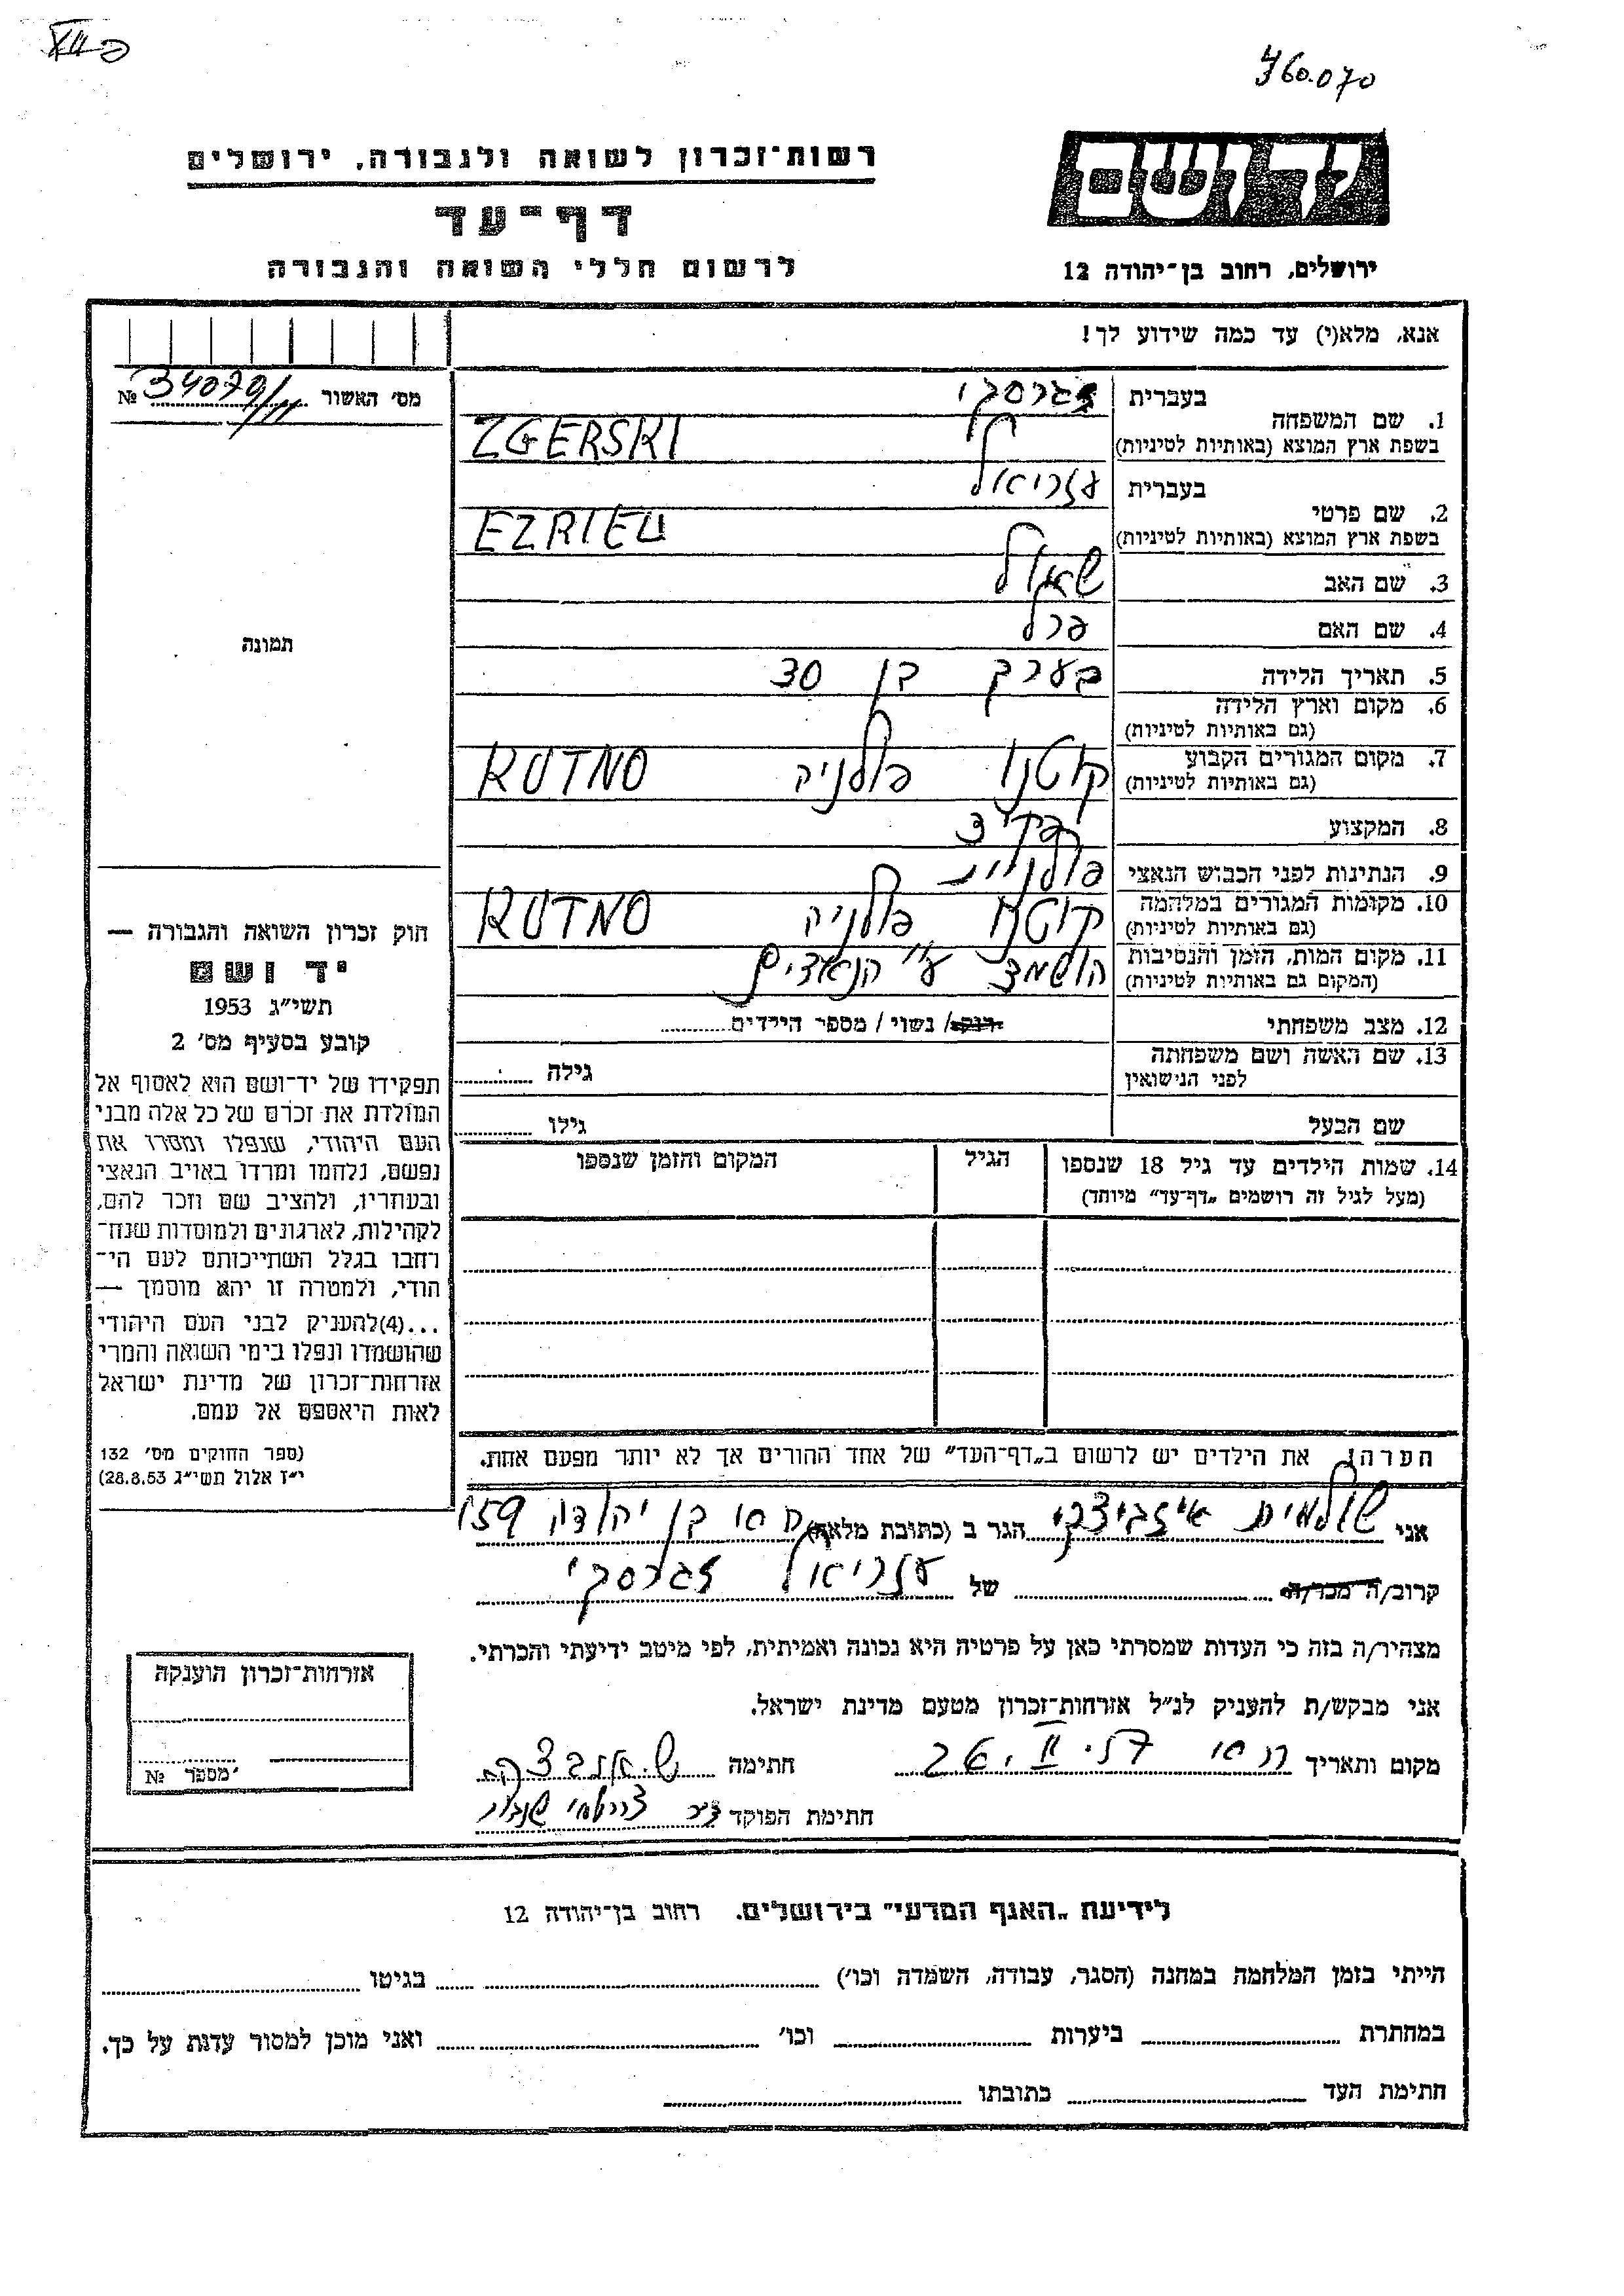 460.070
יד ושם
רשות־זכרון לשואה ולגבורה, ירושלים
דף־עד
לרשום חללי השואה והגבורה
ירושלים, רחוב בן־יהודה 12
אנא, מלא(י) עד כמה שידוע לך!
מס׳ האשור № 34079/11
1. שם המשפחה
בעברית זגרסקי
בשפת ארץ המוצא (באותיות לטיניות) ZGERSKI
2. שם פרטי
בעברית עזריאל
בשפת ארץ המוצא (באותיות לטיניות) EZRIEL
3. שם האב שאול
4. שם האם פרל
5. תאריך הלידה בערך בן 30
6. מקום וארץ הלידה
(גם באותיות לטיניות)
7. מקום המגורים הקבוע קוטנו פולניה KUTNO
(גם באותיות לטיניות)
8. המקצוע פקיד
9. הנתינות לפני הכבוש הנאצי פולנית
10. מקומות המגורים במלחמה קוטנו פולניה KUTNO
(גם באותיות לטיניות)
11. מקום המות, הזמן והנסיבות הושמד ע״י הנאצים
(המקום גם באותיות לטיניות)
12. מצב משפחתי רוק/ נשוי / מספר הילדים
13. שם האשה ושם משפחתה גילה
לפני הנישואין
שם הבעל גילו
14. שמות הילדים עד גיל 18 שנספו הגיל המקום והזמן שנספו
(מעל לגיל זה רושמים „דף־עד״ מיוחד)
הערה! את הילדים יש לרשום ב„דף־העד״ של אחד ההורים אך לא יותר מפעם אחת.
תמונה
חוק זכרון השואה והגבורה —
יד ושם
תשי״ג 1953
קובע בסעיף מס׳ 2
תפקידו של יד־ושם הוא לאסוף אל
המולדת את זכרם של כל אלה מבני
העם היהודי, שנפלו ומסרו את
נפשם, נלחמו ומרדו באויב הנאצי
ובעוזריו, ולהציב שם וזכר להם,
לקהילות, לארגונים ולמוסדות שנח־
רבו בגלל השתייכותם לעם הי־
הודי, ולמטרה זו יהא מוסמך —
...(4)להעניק לבני העם היהודי
שהושמדו ונפלו בימי השואה והמרי
אזרחות־זכרון של מדינת ישראל
לאות היאספם אל עמם.
(ספר החוקים מס׳ 132
י״ז אלול תשי״ג 28.8.53)
אני שולמית איזביצקי הגר ב (כתובת מלאה) בן יהודה 159
קרוב/ה מכר/ה של עזריאל זגרסקי
מצהיר/ה בזה כי העדות שמסרתי כאן על פרטיה היא נכונה ואמיתית, לפי מיטב ידיעתי והכרתי.
אני מבקש/ת להעניק לנ״ל אזרחות־זכרון מטעם מדינת ישראל.
מקום ותאריך חתימה
חתימת הפוקד
אזרחות־זכרון הוענקה
מספר №
לידיעת „האגף המדעי״ בירושלים. רחוב בן־יהודה 12
הייתי בזמן המלחמה במחנה (הסגר, עבודה, השמדה וכו׳) בגיטו
במחתרת ביערות וכו׳ ואני מוכן למסור עדות על כך.
חתימת העד כתובתו